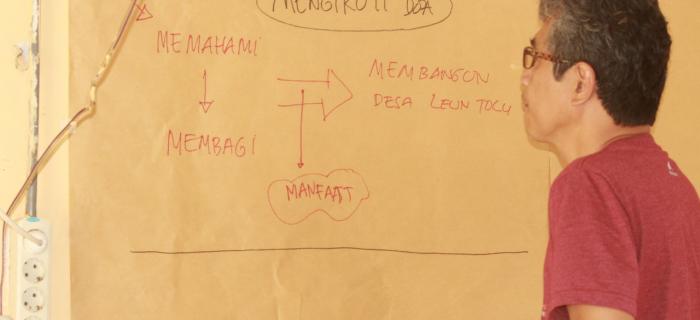 MENGIKUTI DOA
MEMAHAMi
MEMBANGUN
DESA LEUN TOLU
MEMBAGI
MANFAAT